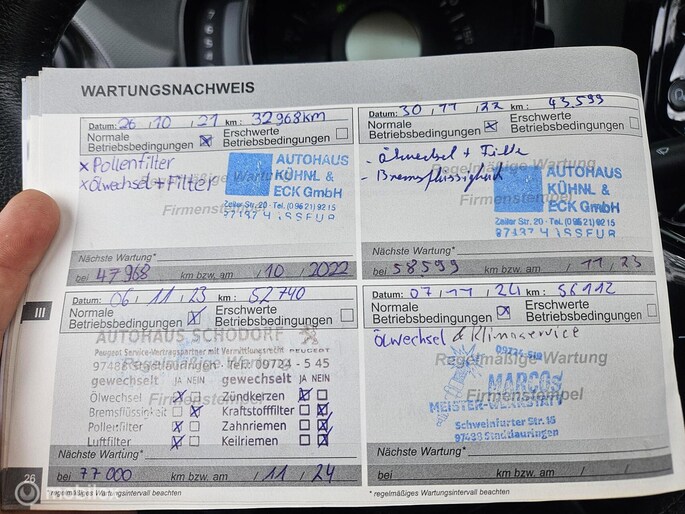 WARTUNGSNACHWEIS
Datum: 26 / 10 / 21 km: 32968km
Normale Betriebsbedingungen ☒ Erschwerte Betriebsbedingungen ☐
x Pollenfilter
x Ölwechsel + Filter
Regelmäßige Wartung
Firmenstempel
AUTOHAUS
KÜHNL &
ECK GmbH
Zeiler Str. 20 · Tel. (0 95 21) 92 15
Nächste Wartung*
bei 47968 km bzw. am / 10 / 2022
Datum: 30 / 11 / 22 km: 43.599
Normale Betriebsbedingungen ☒ Erschwerte Betriebsbedingungen ☐
- Ölwechsel + Filter
- Bremsflüssigkeit
Regelmäßige Wartung
Firmenstempel
AUTOHAUS
KÜHNL &
ECK GmbH
Zeiler Str. 20 · Tel. (0 95 21) 92 15
Nächste Wartung*
bei 58599 km bzw. am / 11 / 23
III
Datum: 06 / 11 / 23 km: 52740
Normale Betriebsbedingungen ☒ Erschwerte Betriebsbedingungen ☐
AUTOHAUS SCHODORF
Peugeot Service-Vertragspartner mit Vermittlungsrecht PEUGEOT
97488 Stadtlauringen Tel.: 09724 - 5 45
gewechselt JA NEIN gewechselt JA NEIN
Ölwechsel ☒ ☐ Zündkerzen ☒ ☐
Bremsflüssigkeit ☐ ☒ Kraftstofffilter ☐ ☒
Pollenfilter ☒ ☐ Zahnriemen ☐ ☒
Luftfilter ☒ ☐ Keilriemen ☐ ☒
Nächste Wartung*
bei 77000 km bzw. am / 11 / 24
* regelmäßiges Wartungsintervall beachten
Datum: 07 / 11 / 24 km: 56112
Normale Betriebsbedingungen ☒ Erschwerte Betriebsbedingungen ☐
Ölwechsel & Klimaservice
Regelmäßige Wartung
Firmenstempel
MARCOS
MEISTER-WERKSTATT
Schweinfurter Str. 15
97488 Stadtlauringen
Nächste Wartung*
bei km bzw. am / /
* regelmäßiges Wartungsintervall beachten
26